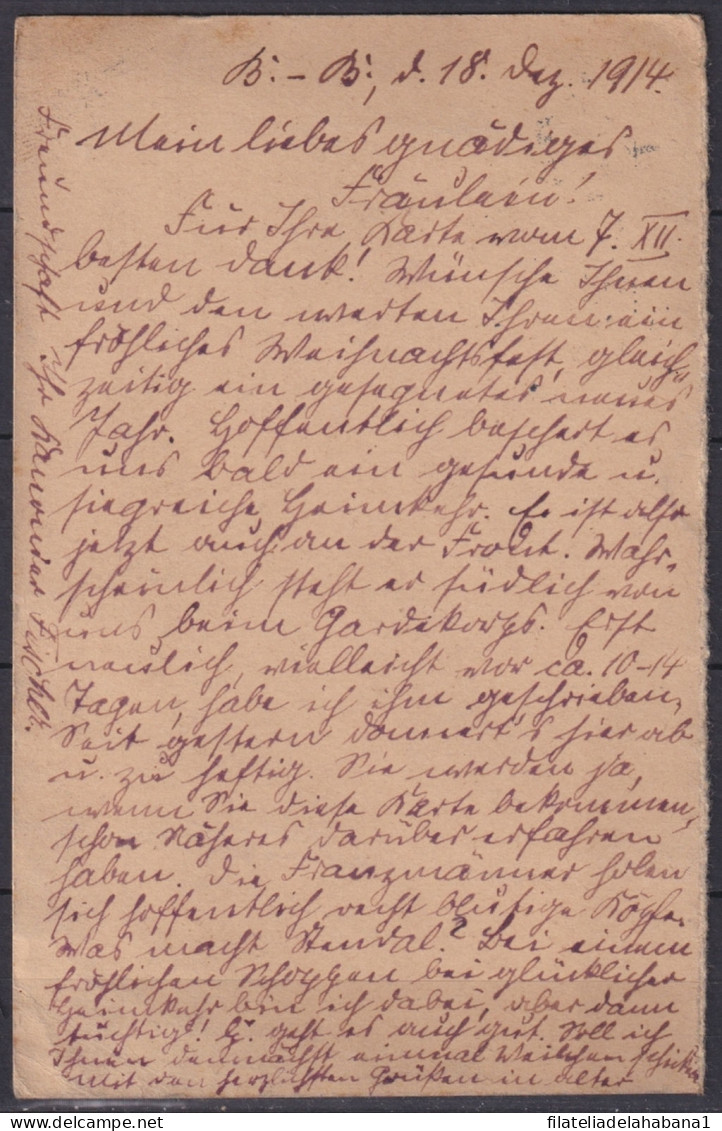 B. - B., d. 18. Dez. 1914.
Mein liebes gnädiges
Fräulein!
Für Ihre Karte vom 7. XII.
besten Dank! Wünsche Ihnen
und den werten Ihren ein
fröhliches Weihnachtsfest, gleich=
zeitig ein gesegnetes neues
Jahr. Hoffentlich beschert es
uns bald ein gesunde u.
siegreiche Heimkehr. Er ist also
jetzt auch an der Front. Wahr=
scheinlich steht er südlich von
uns beim Gardekorps. Erst
neulich, vielleicht vor ca. 10-14
Tagen, habe ich ihm geschrieben.
Seit gestern donnert's hier ab
u. zu heftig. Sie werden ja,
wenn Sie diese Karte bekommen,
schon Näheres darüber erfahren
haben. Die Franzmänner holen
sich hoffentlich recht blutige Köpfe.
Was macht Stendal? Bei einem
fröhlichen Schoppen bei glücklicher
Heimkehr bin ich dabei, aber dann
tüchtig! geht es auch gut. Soll ich
Ihnen demnächst einmal schicken
Mit den herzlichsten Grüßen in alter
Freundschaft Ihr Fischer.
filateliadelahabana1